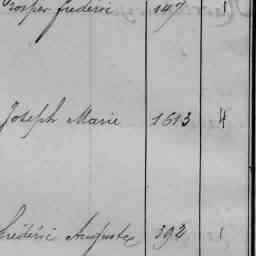 Prosper frederic 147 1
Joseph Marie 1613 4
frédéric Auguste 392 1